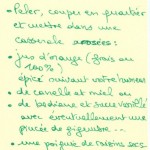 • Peler, couper en quartier
et mettre dans une
casserole arrosées :
• jus d'orange (frais ou
100%)
épicé suivant votre humeur
• de canelle et miel ou
• de badiane et sucre vanillé
avec éventuellement une
pincée de gingembre...
• une poignée de raisins secs